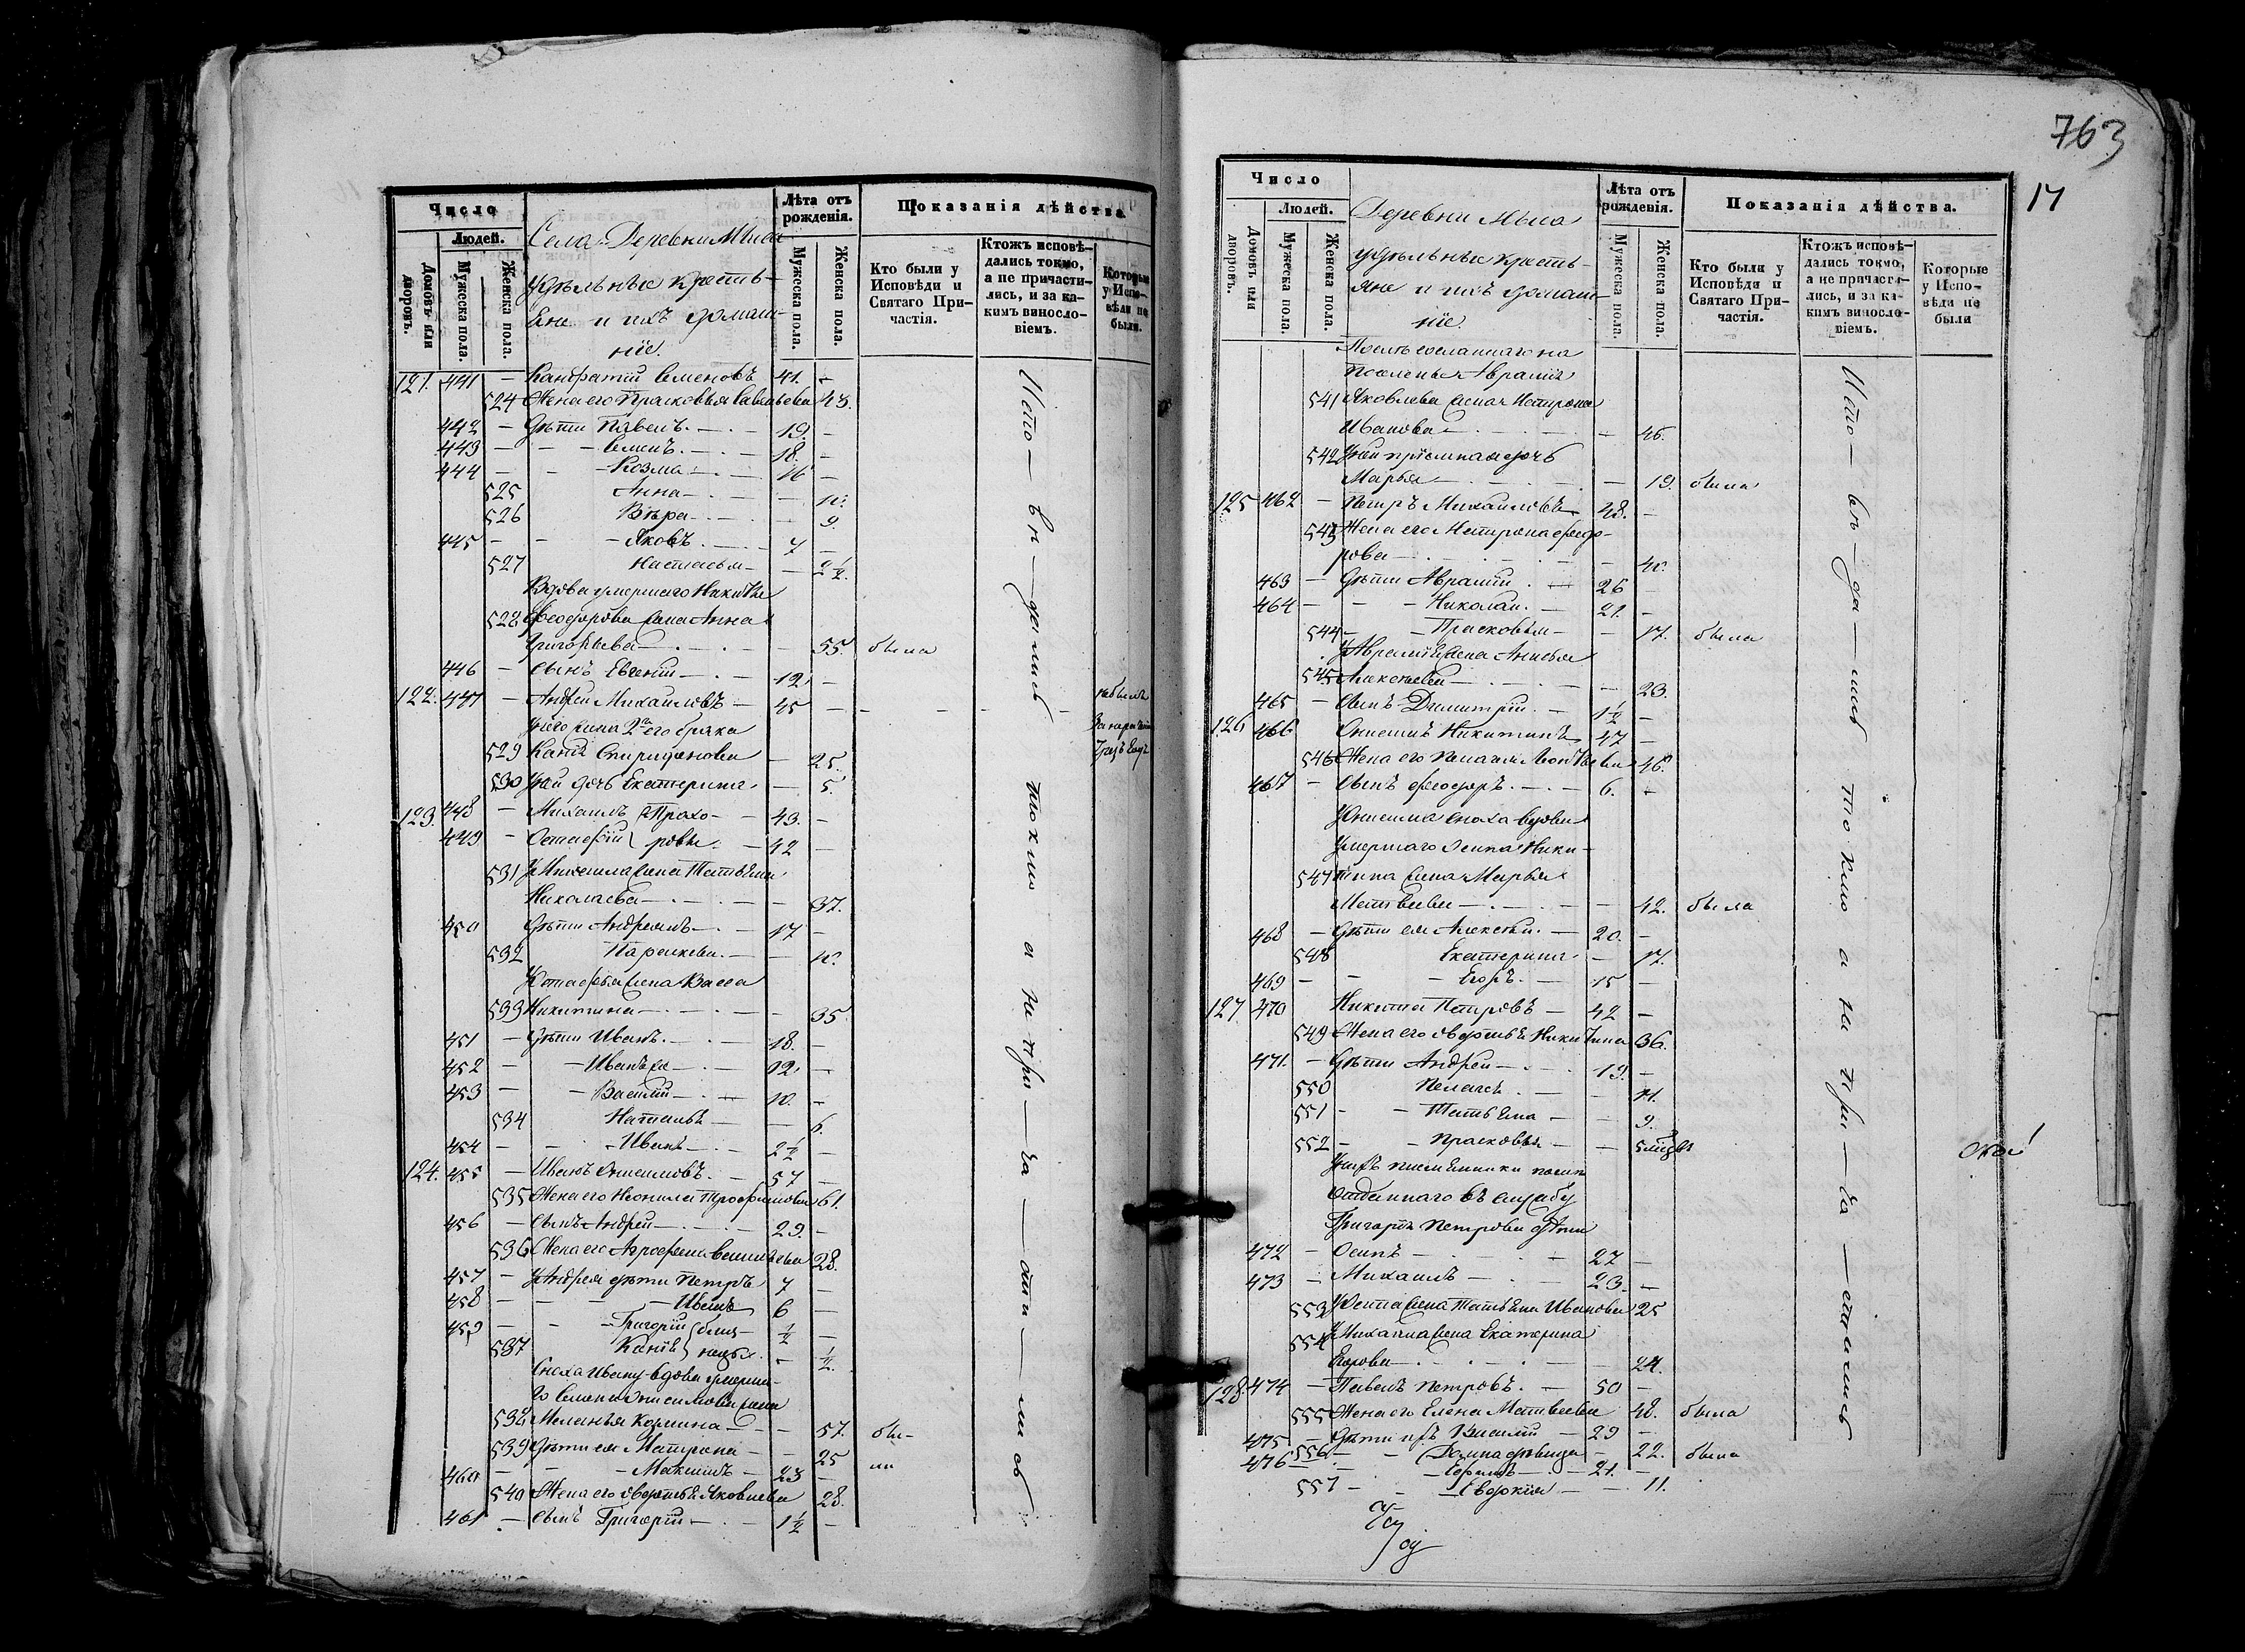 Число
Людей.
Домовъ или дворовъ.
Мужеска пола.
Женска пола.
Села Деревни Мыса
удѣльные крестья-
не и ихъ домаш-
ніе.
Лѣта отъ рожденія.
Мужеска пола.
Женска пола.
Показанія дѣйства
Кто были у Исповѣди и Святаго Причастія.
Ктожъ исповѣдались токмо, а не причастились, и за какимъ винословіемъ.
Которые у Исповѣди не были.
121. 441 — Кандратій Семеновъ 41. —
524 Жена его Прасковья Савельева 43.
442 — Дѣти Павелъ. — 19. —
443 — — Семенъ. — 18. —
444 — — Козма — 16 —
525 Анна — — 10.
526 Вѣра — — 9.
445 — — Яковъ. — 7 —
527 Настасья — — 2½.
Вдова умершаго Никиты
528 Феодорова жена Анна
Григорьева — — 55. была
446 — Сынъ Евгеній — 12. —
122. 447 — Андрей Михайловъ — 45 — небылъ
У него жена 2го брака
529 Спиридонова — 25.
530 У ней дочь Екатерина — 5.
123. 448 — Михаилъ } Прохо- — 43. —
449 — Остафій } ровы. — 42 —
531 У Михаила жена Татьяна
Николаева — — 37.
450 Дѣти Андреянъ — 17 —
532 Параскева. — — 10.
У Остафья жена Васса
533 Никитина — — 35.
451 — Дѣти Иванъ. — 18. —
452 — — Иванъ же — 12. —
453 — — Василій — 10. —
534 Наталья — — 6.
454 — — Иванъ — 2½ —
124. 455 — Иванъ Анисимовъ. — 57 —
535 Жена его Неонила Трофимова 61.
456 — Сынъ Андрей — 29. —
536 Жена его Агрофена Васильева 28.
457 — У Андрея дѣти Петръ 7 —
458 — — Иванъ 6 —
459 — — Григорій } близ- ½ —
537 } нецы. — ½.
Сноха Ивану вдова умерша-
го Семена Анисимова жена
538 Меланья Козмина — — 57. бы-
539 Дѣти ея Матрона — — 25 ли
460 — — Максимъ — 23 —
540 Жена его Авдотья Яковлева 28.
461 — Сынъ Григорій — 1½ —
Исто — вѣ — дались токмо а не при — ча — сти — лись
763
17
Число
Людей.
Домовъ или дворовъ.
Мужеска пола.
Женска пола.
Деревни Мыса
удѣльные кресть-
яне и ихъ домаш-
ніе.
Лѣта отъ рожденія.
Мужеска пола.
Женска пола.
Показанія дѣйства.
Кто были у Исповѣди и Святаго Причастія.
Ктожъ исповѣдались токмо, а не причастились, и за какимъ винословіемъ.
Которые у Исповѣди не были
Послѣ сосланнаго на
поселенье Авраама
541 Яковлева жена Матрона
Иванова — — 46.
542 У ней пріемная дочь
Марья — — 19. была
125 462 — Петръ Михайловъ 48. —
543 Жена его Матрона Федо-
рова — — 40.
463 — Дѣти Аврамій. — 26 —
464 — — Николай. — 21. —
544 — — Прасковья — — 17. была
У Аврамія жена Анисья
545 Алексѣева — — 23.
465 — Сынъ Димитрій. — 1½ —
126 466 Анисимъ Никитинъ 47 —
546 Жена его Пелагея 46.
467 — Сынъ Феодоръ. — 6. —
У Анисима сноха вдова
умершаго Осипа Ники-
547 тина жена Марья
Матвеева — — 42. была
468 — Дѣти ея Алексѣй. — 20. —
548 Екатерина — 17.
469 — — Егоръ. — 15 —
127. 470 Никита Петровъ — 42 —
549 Жена его Авдотья Никитина 36.
471. — Дѣти Андрей — 19. —
550 Пелагея. — — 11.
551 — — Татьяна — — 9.
552 — — Прасковья — — 5
У нихъ племянники послѣ
отданнаго въ службу
Григорія Петрова дѣти
472 — Осипъ — 27 —
473 — Михаилъ — 23. —
553 У Осипа жена Татьяна Иванова 25
554 У Михаила жена Екатерина
Егорова — — 24.
128 474 — Павелъ Петровъ. — 50 —
555 Жена его Елена Матвеева 48. была
475 — Дѣти ихъ Василій — 29 —
476 556 — Домна дѣвица — 22. была
— Ефимъ — 21. —
557 — — Евдокія — — 11.
Исто — вѣ — да — лись токмо а не при — ча — стились